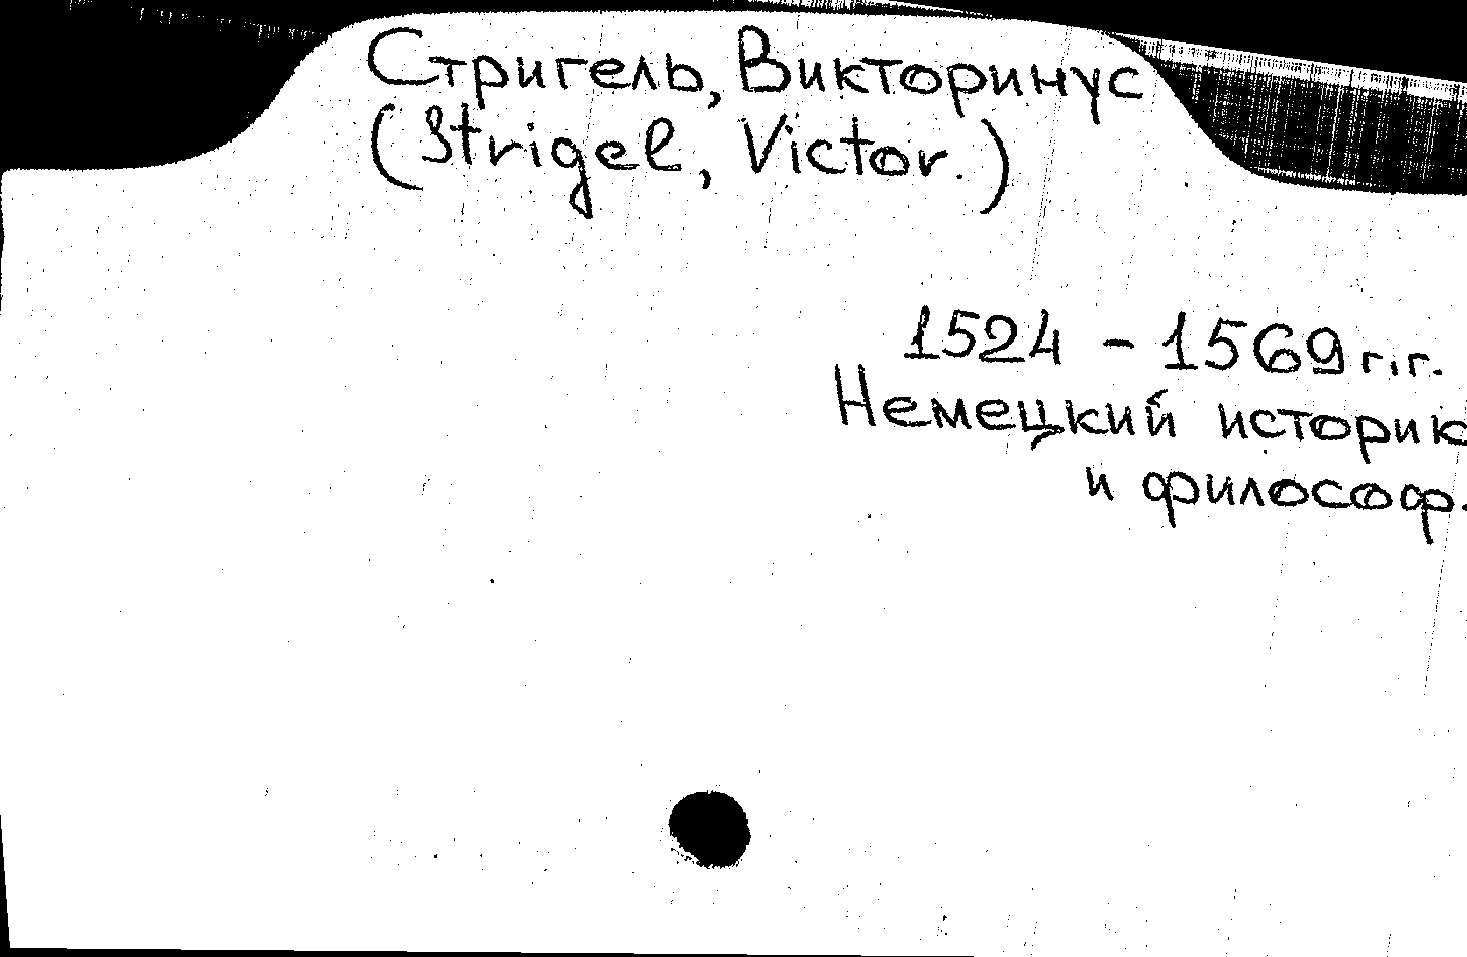 Стригель, Викторинус
(Strigel, Victor.)
1524 - 1569 г.г.
Немецкий историк
и философ.